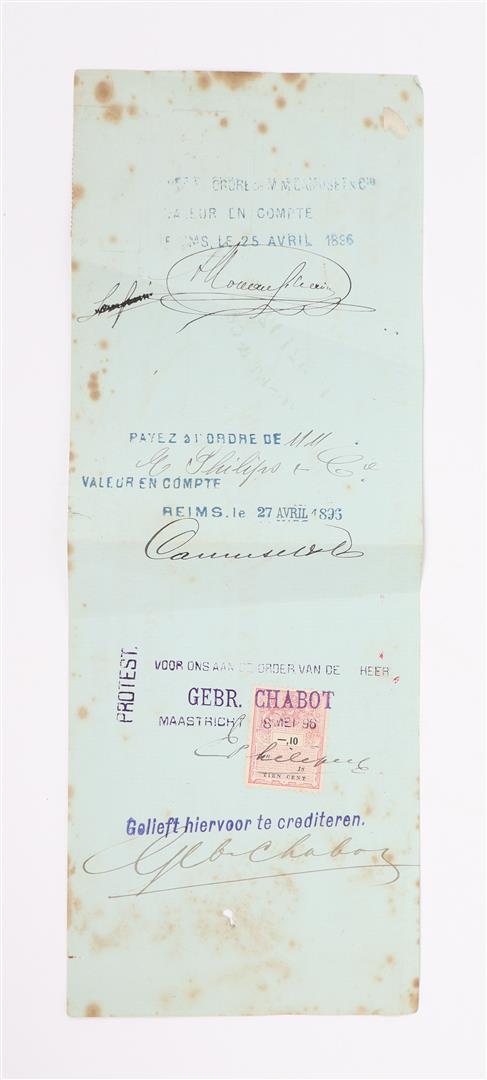 ORDRE DE M.M. CAMUSET & CIE
VALEUR EN COMPTE
REIMS, LE 25 AVRIL 1896
PAYEZ à l'ORDRE DE MM
E Philips & Cie
VALEUR EN COMPTE
REIMS. le 27 AVRIL 1896
Camuset & Cie
PROTEST.
VOOR ONS AAN DE ORDER VAN DE HEER
GEBR. CHABOT
MAASTRICHT 8 MEI 96
—,10
18
TIEN CENT
E Philips & C
Gelieft hiervoor te crediteren.
Gebr Chabot